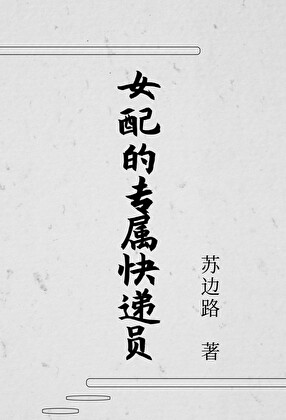 女配的专属快递员
苏边路 著